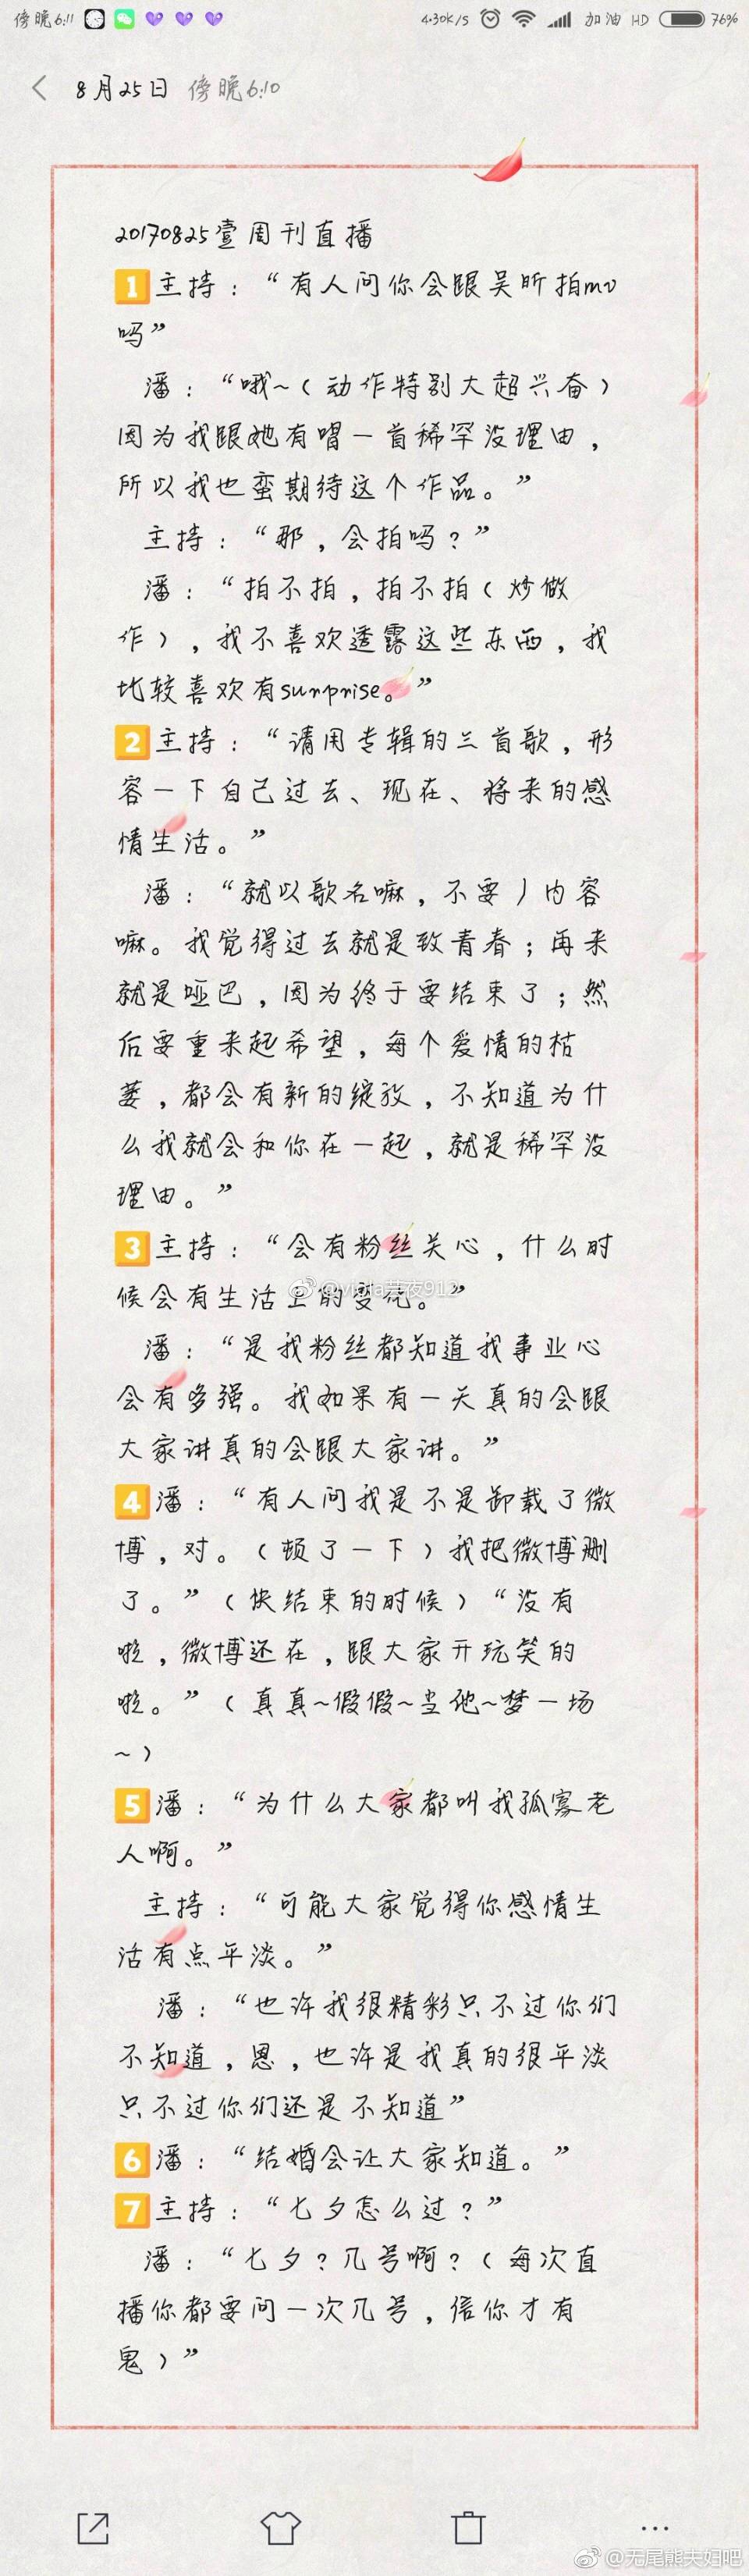 傍晚6:11 4.30K/s 加油 HD 76%
8月25日 傍晚6:10
20170825壹周刊直播
1主持：“有人问你会跟吴昕拍mv
吗”
潘：“哦~（动作特别大超兴奋）
因为我跟她有唱一首稀罕没理由，
所以我也蛮期待这个作品。”
主持：“那，会拍吗？”
潘：“拍不拍，拍不拍（炒做
作），我不喜欢透露这些东西，我
比较喜欢有surprise。”
2主持：“请用专辑的三首歌，形
容一下自己过去、现在、将来的感
情生活。”
潘：“就以歌名嘛，不要）内容
嘛。我觉得过去就是致青春；再来
就是哑巴，因为终于要结束了；然
后要重来起希望，每个爱情的枯
萎，都会有新的绽放，不知道为什
么我就会和你在一起，就是稀罕没
理由。”
3主持：“会有粉丝关心，什么时
候会有生活上的变化。”
潘：“是我粉丝都知道我事业心
会有多强。我如果有一天真的会跟
大家讲真的会跟大家讲。”
4潘：“有人问我是不是卸载了微
博，对。（顿了一下）我把微博删
了。”（快结束的时候）“没有
啦，微博还在，跟大家开玩笑的
啦。”（真真~假假~当他~梦一场
~）
5潘：“为什么大家都叫我孤寡老
人啊。”
主持：“可能大家觉得你感情生
活有点平淡。”
潘：“也许我很精彩只不过你们
不知道，恩，也许是我真的很平淡
只不过你们还是不知道”
6潘：“结婚会让大家知道。”
7主持：“七夕怎么过？”
潘：“七夕？几号啊？（每次直
播你都要问一次几号，信你才有
鬼）”
@无尾熊夫妇吧